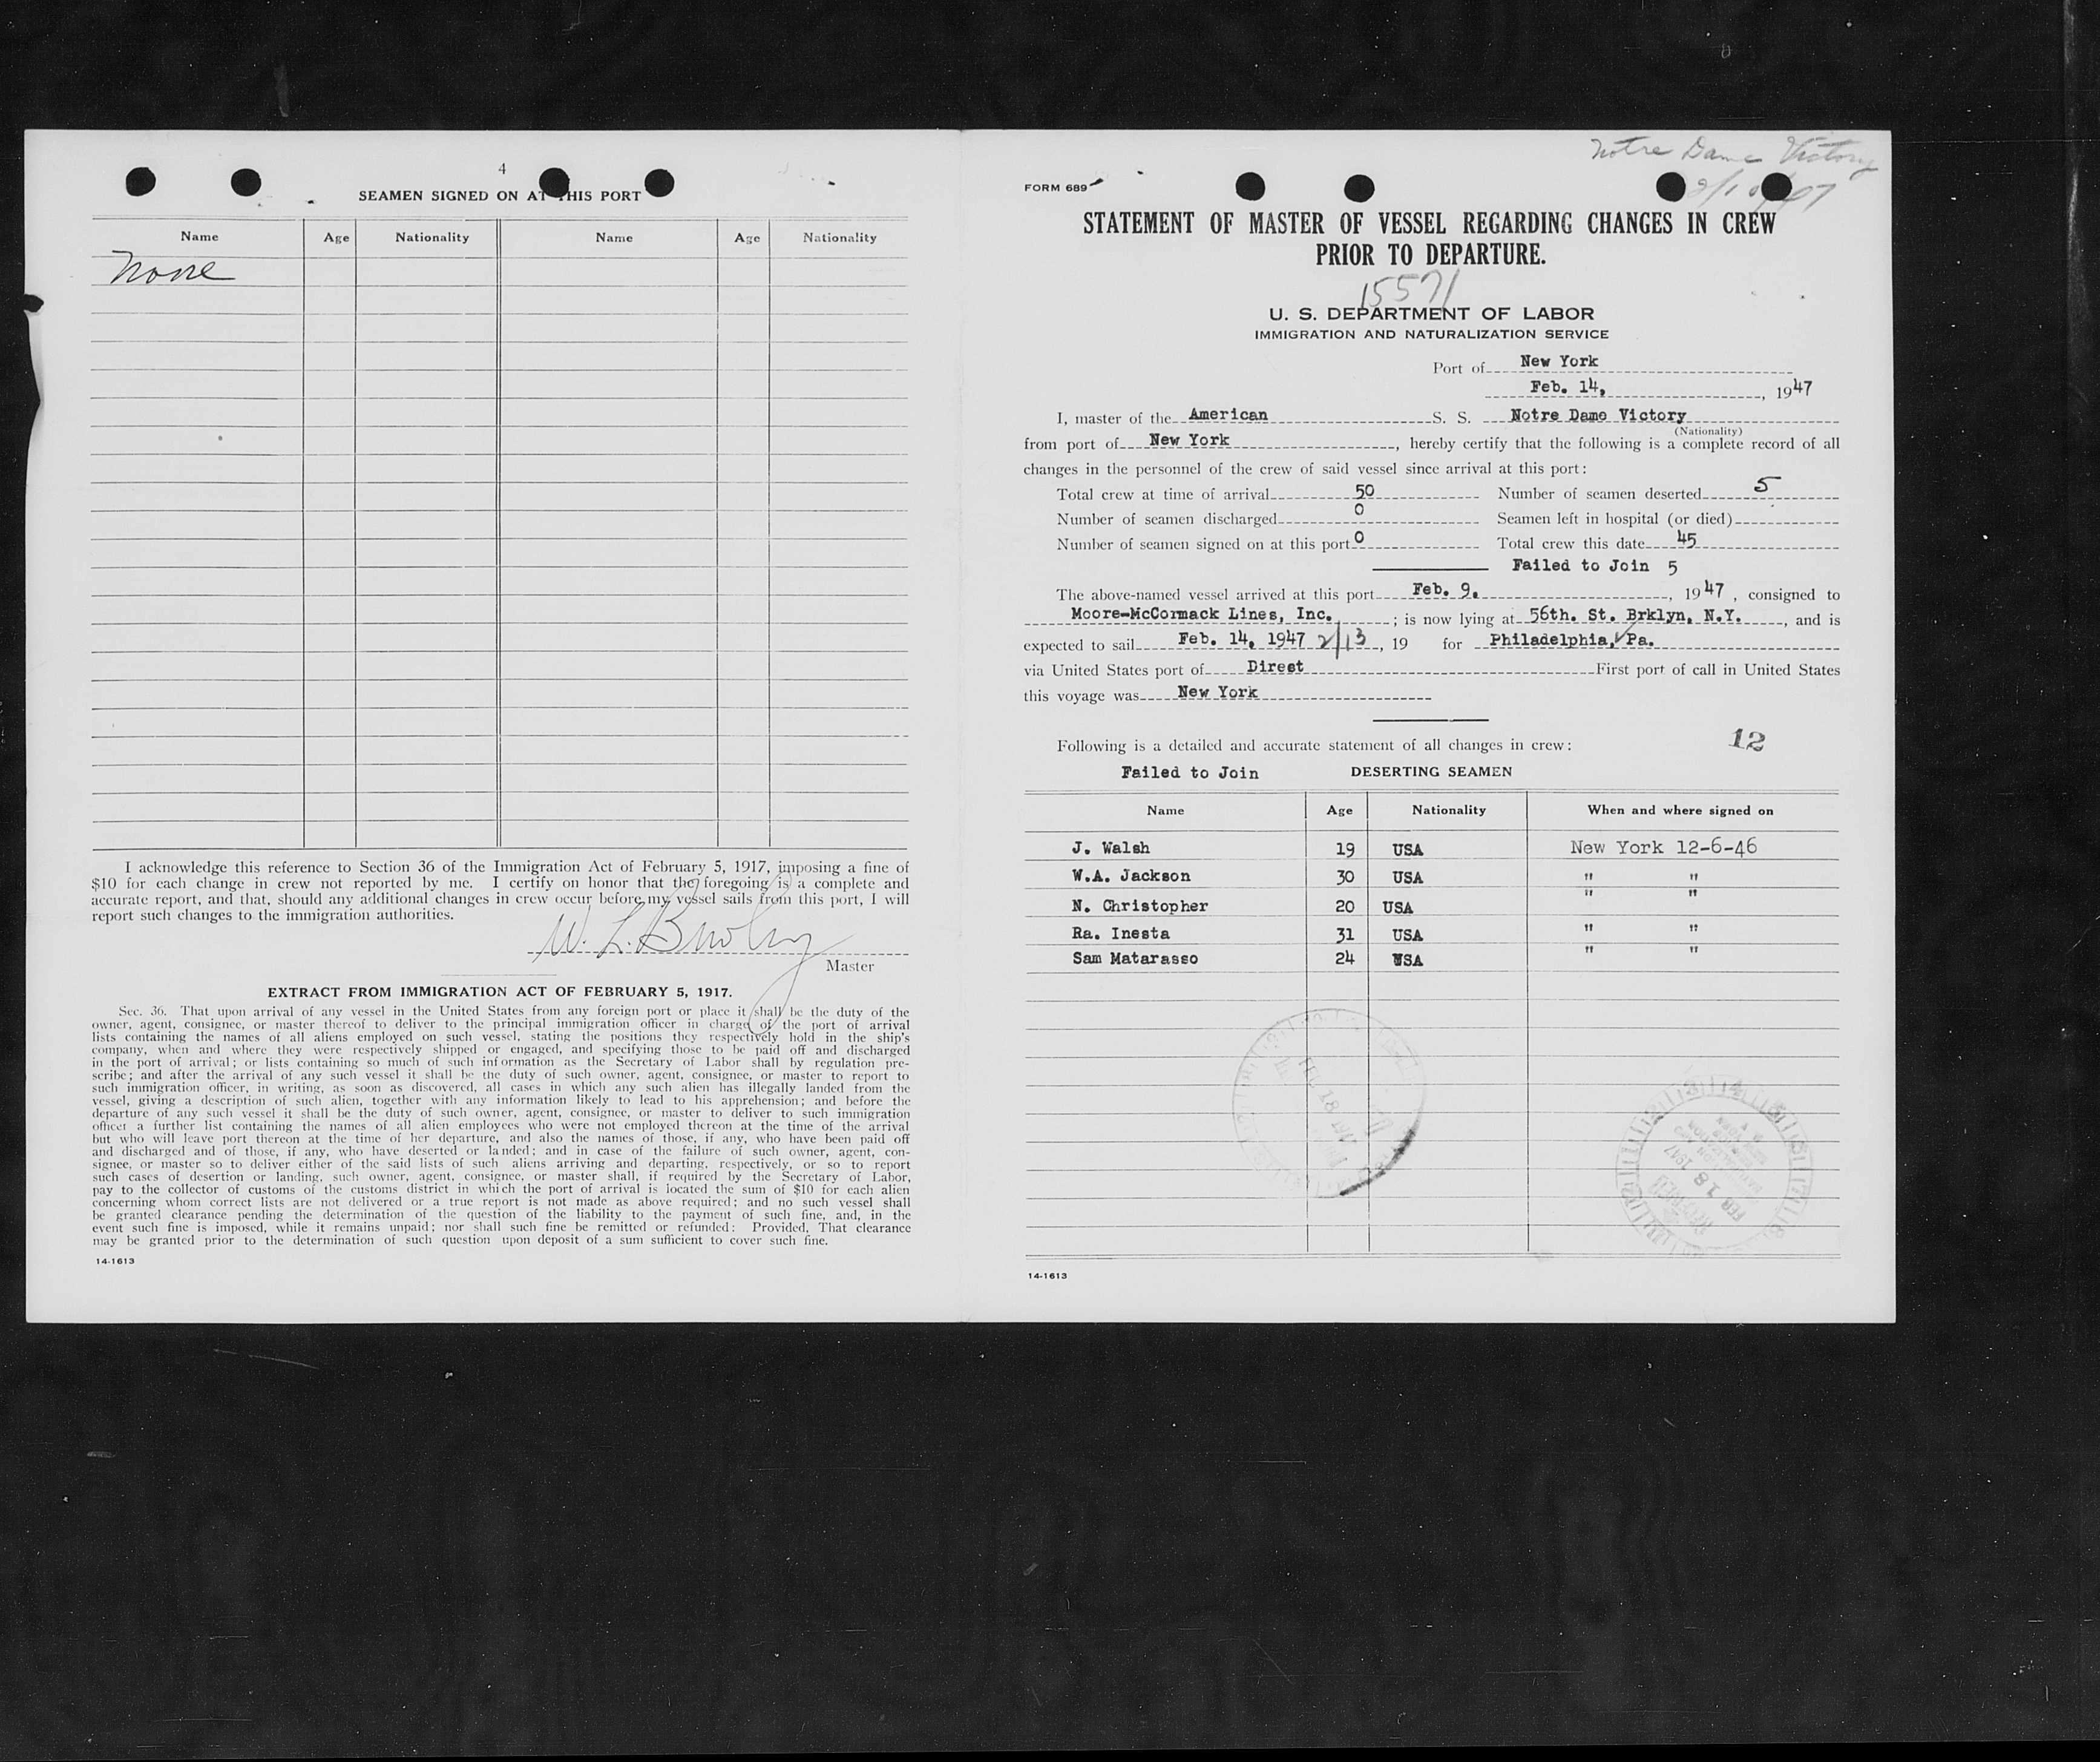 4
SEAMEN SIGNED ON AT THIS PORT
Name Age Nationality Name Age Nationality
None
I acknowledge this reference to Section 36 of the Immigration Act of February 5, 1917, imposing a fine of
$10 for each change in crew not reported by me. I certify on honor that the foregoing is a complete and
accurate report, and that, should any additional changes in crew occur before my vessel sails from this port, I will
report such changes to the immigration authorities.
W. L.
Master
EXTRACT FROM IMMIGRATION ACT OF FEBRUARY 5, 1917.
Sec. 36. That upon arrival of any vessel in the United States from any foreign port or place it shall be the duty of the
owner, agent, consignee, or master thereof to deliver to the principal immigration officer in charge of the port of arrival
lists containing the names of all aliens employed on such vessel, stating the positions they respectively hold in the ship's
company, when and where they were respectively shipped or engaged, and specifying those to be paid off and discharged
in the port of arrival; or lists containing so much of such information as the Secretary of Labor shall by regulation pre-
scribe; and after the arrival of any such vessel it shall be the duty of such owner, agent, consignee, or master to report to
such immigration officer, in writing, as soon as discovered, all cases in which any such alien has illegally landed from the
vessel, giving a description of such alien, together with any information likely to lead to his apprehension; and before the
departure of any such vessel it shall be the duty of such owner, agent, consignee, or master to deliver to such immigration
officer a further list containing the names of all alien employees who were not employed thereon at the time of the arrival
but who will leave port thereon at the time of her departure, and also the names of those, if any, who have been paid off
and discharged and of those, if any, who have deserted or landed; and in case of the failure of such owner, agent, con-
signee, or master so to deliver either of the said lists of such aliens arriving and departing, respectively, or so to report
such cases of desertion or landing, such owner, agent, consignee, or master shall, if required by the Secretary of Labor,
pay to the collector of customs of the customs district in which the port of arrival is located the sum of $10 for each alien
concerning whom correct lists are not delivered or a true report is not made as above required; and no such vessel shall
be granted clearance pending the determination of the question of the liability to the payment of such fine, and, in the
event such fine is imposed, while it remains unpaid; nor shall such fine be remitted or refunded: Provided, That clearance
may be granted prior to the determination of such question upon deposit of a sum sufficient to cover such fine.
14-1613
Notre Dame Victory
FORM 689
STATEMENT OF MASTER OF VESSEL REGARDING CHANGES IN CREW
PRIOR TO DEPARTURE.
15571
U. S. DEPARTMENT OF LABOR
IMMIGRATION AND NATURALIZATION SERVICE
Port of New York
Feb. 14, , 1947
I, master of the American S. S. Notre Dame Victory
(Nationality)
from port of New York , hereby certify that the following is a complete record of all
changes in the personnel of the crew of said vessel since arrival at this port:
Total crew at time of arrival 50 Number of seamen deserted 5
Number of seamen discharged 0 Seamen left in hospital (or died)
Number of seamen signed on at this port 0 Total crew this date 45
Failed to Join 5
The above-named vessel arrived at this port Feb. 9. , 1947 , consigned to
Moore-McCormack Lines, Inc. ; is now lying at 56th. St. Brklyn, N.Y. , and is
expected to sail Feb. 14, 1947 2/13 , 19 for Philadelphia, Pa.
via United States port of Direct First port of call in United States
this voyage was New York
Following is a detailed and accurate statement of all changes in crew: 12
Failed to Join DESERTING SEAMEN
Name Age Nationality When and where signed on
J. Walsh 19 USA New York 12-6-46
W.A. Jackson 30 USA " "
N. Christopher 20 USA " "
Ra. Inesta 31 USA " "
Sam Matarasso 24 USA " "
FEB 18 1947
FEB 18 1947
14-1613